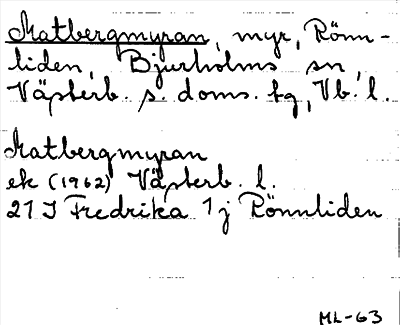 Matbergmyran, myr, Rönn-
liden, Bjurholms sn,
Västerb. s. doms. tg, Vb. l.
Matbergmyran
ek (1962) Västerb. l.
21 J Fredrika 1 j Rönnliden
ML-63